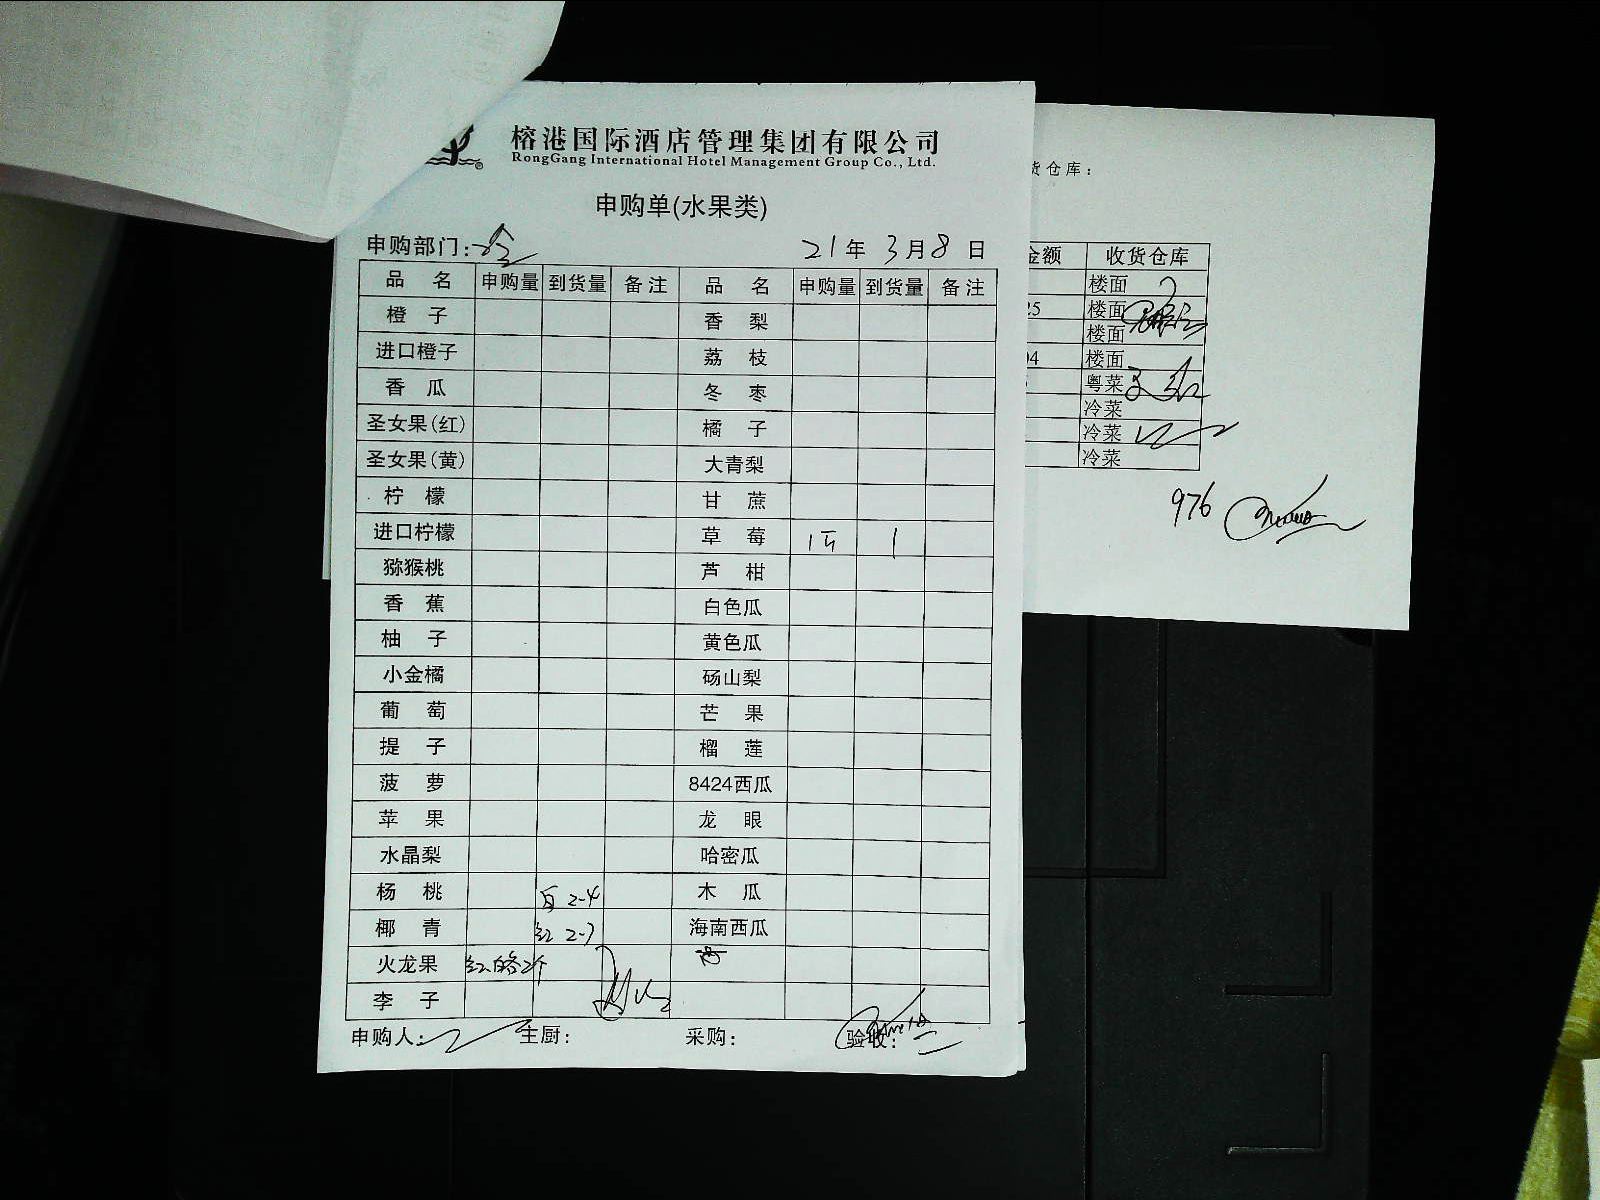 榕港国际酒店管理集团有限公司
RongGang International Hotel Management Group Co., Ltd.
申购单(水果类)
申购部门: 21年 3月8日
品名 申购量 到货量 备注 品名 申购量 到货量 备注
橙子 香梨
进口橙子 荔枝
香瓜 冬枣
圣女果(红) 橘子
圣女果(黄) 大青梨
柠檬 甘蔗
进口柠檬 草莓 1 1
猕猴桃 芦柑
香蕉 白色瓜
柚子 黄色瓜
小金橘 砀山梨
葡萄 芒果
提子 榴莲
菠萝 8424西瓜
苹果 龙眼
水晶梨 哈密瓜
杨桃 白 2-4 木瓜
椰青 红 2-7 海南西瓜
火龙果 红.白各2个
李子
申购人: 主厨: 采购: 验收:
货仓库:
金额 收货仓库
楼面
25 楼面
楼面
04 楼面
粤菜
冷菜
冷菜
冷菜
976